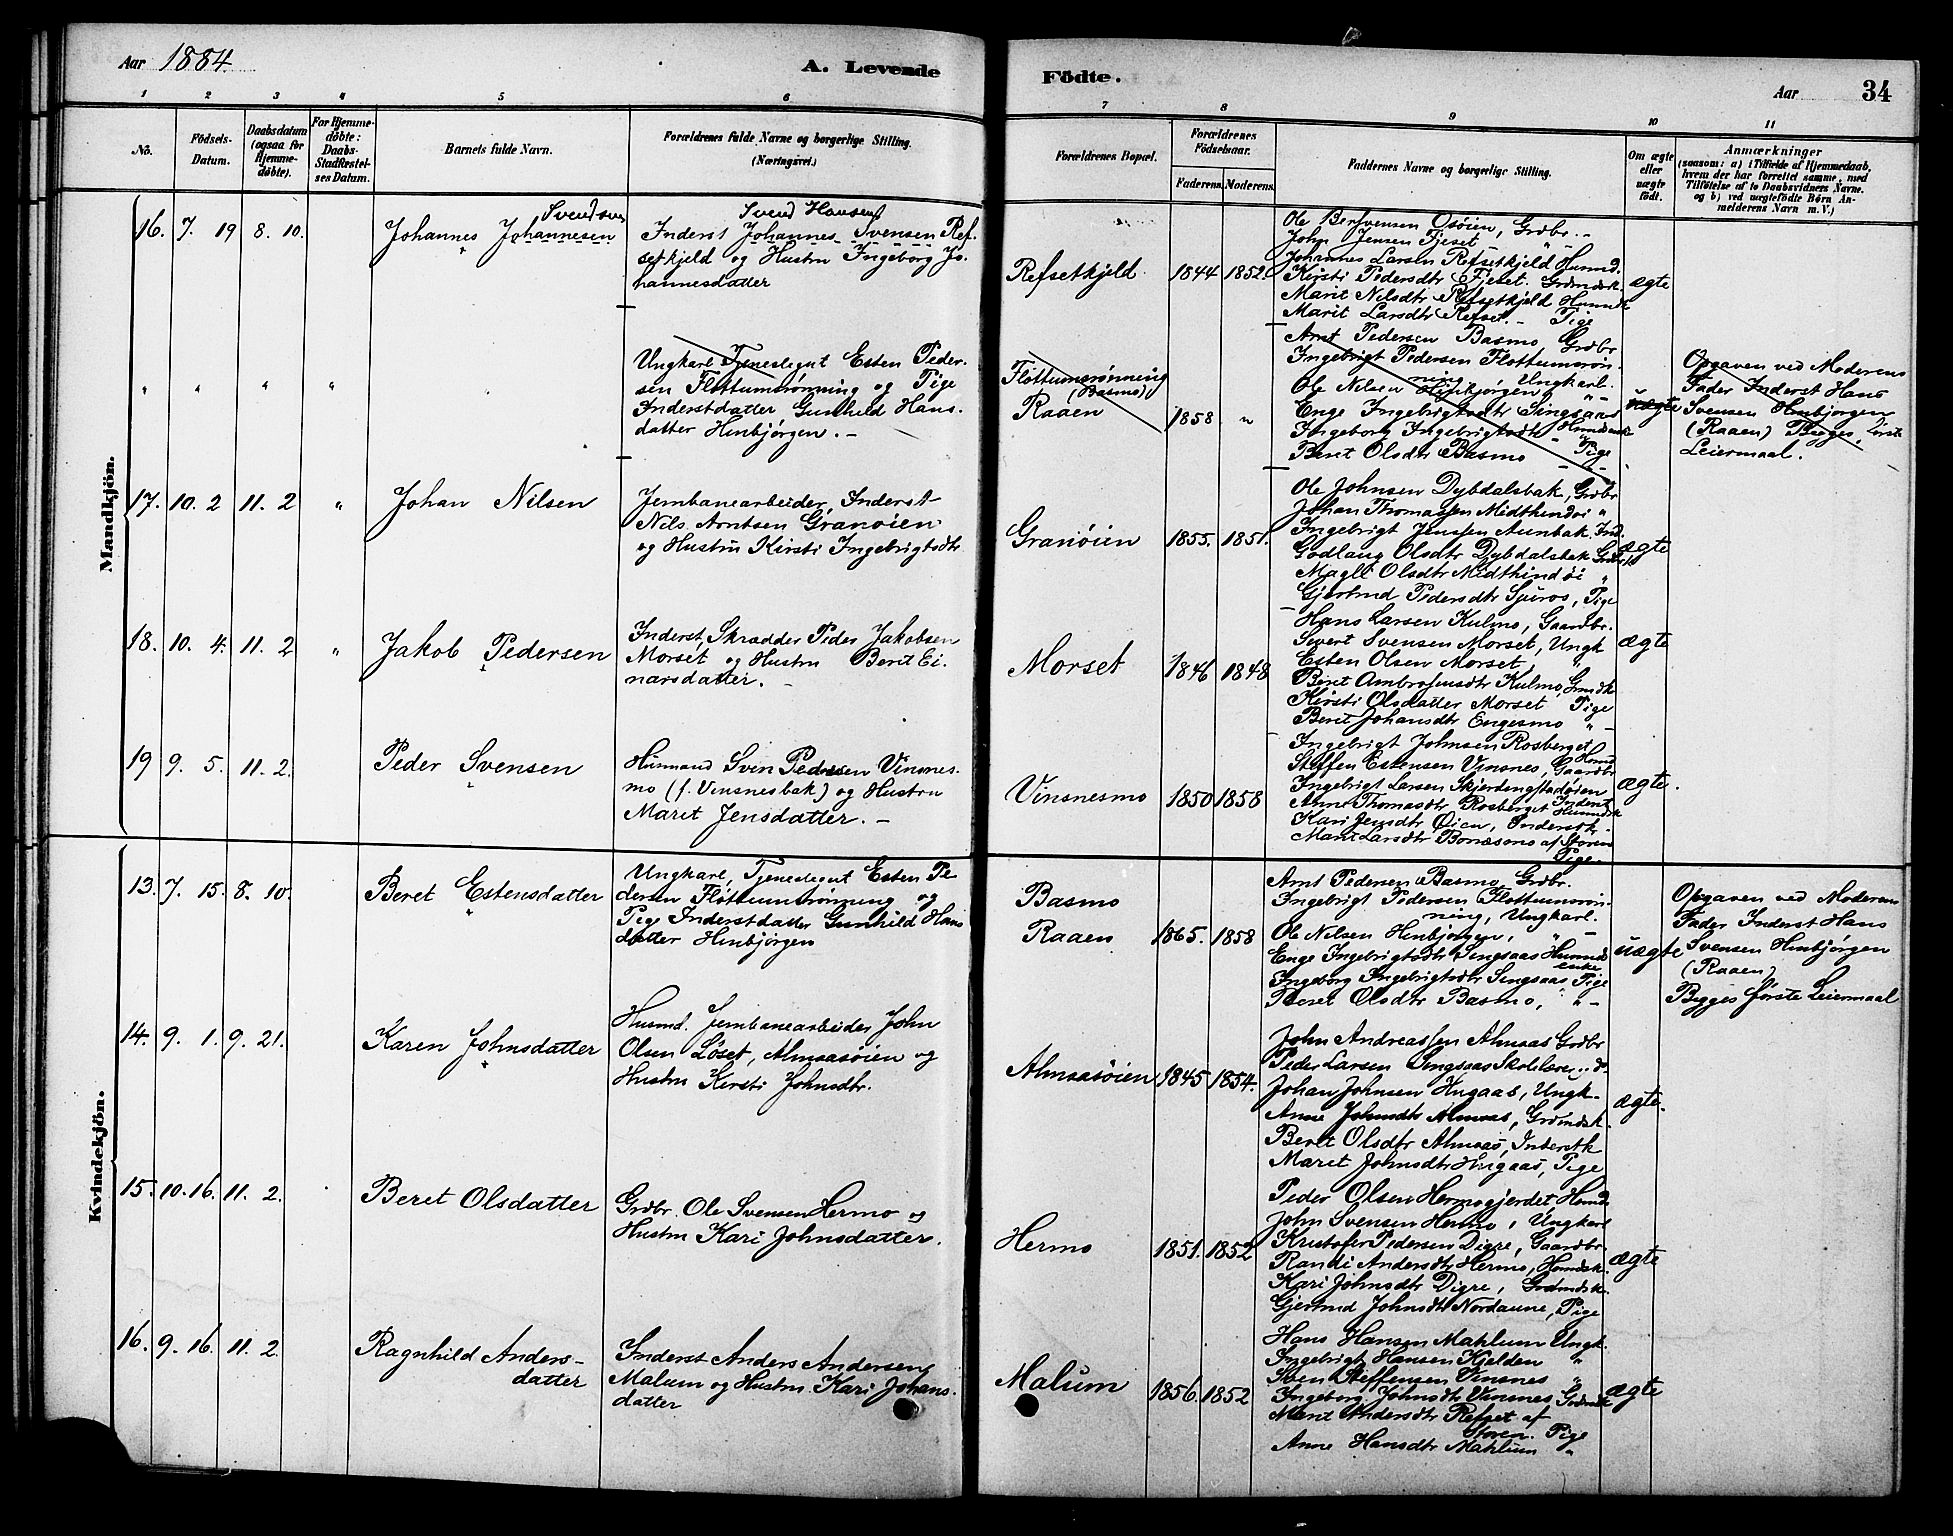 Aar 1884.
A. Levende
Födte.
Aar
34
1 2 3 4 5 6 7 8 9 10 11
No.
Födsels-
Datum.
Daabsdatum
(ogsaa for
Hjemme-
døbte).
For Hjemme-
døbte:
Daabs-
Stadfæstel-
ses Datum.
Barnets fulde Navn.
Forældrenes fulde Navne og borgerlige Stilling.
(Næringsvei.)
Forældrenes Bopæl.
Forældrenes
Födselsaar.
Faderens. Moderens.
Faddernes Navne og borgerlige Stilling.
Om ægte
eller
uægte
födt.
Anmærkninger
(saasom: a) i Tilfælde af Hjemmedaab,
hvem der har forrettet samme, med
Tilföielse af to Daabsvidners Navne.
og b) ved uægtefödte Börn An-
melderens Navn m. V.)
Mandkjön.
16. 7. 19 8. 10.
Svendsen
Johannes Johannesen
Svend Hansen
Inderst Johannes Svensen Ref-
setkjeld og Hustru Ingeborg Jo-
hannesdatter
Refsetkjeld 1844 1852
Ole Berntsensen Osöien, Grdbr. -
John Jensen Fjeset "
Johannes Larsen Refsetkjeld Husmd.
Kirsti Pedersdtr Fjeset. Grdmdsk.
Marit Nilsdtr Refsetkjeld Husmdk
Marit Larsdtr Refset. - Pige
ægte
" " " " "
Ungkarl Tjenestegut Esten Peder-
sen Flottumsrönning og Pige
Inderstdatter Gunhild Hans-
datter Hinbjörgen. -
Flottumsrönning
(Basmo)
Raaen 1858 "
Arnt Pedersen Basmo, Grdbr
Ingebrigt Pedersen Flottumsrön-
ning, Ungkarl.
Ole Nilsen Hinbjörgen, "
Enge Ingebrigtsdtr Singsaas
Ingeborg Ingebrigtsdtr Husmdsenke
Beret Olsdtr Basmo - Pige
uægte
Opgaven ved Moderens
Fader Inderst Hans
Svensen Hinbjörgen
(Raaen) Begges förste
Leiermaal.
17. 10. 2 11. 2 "
Johan Nilsen
Jernbanearbeider, Inderst
Nils Arntsen Granöien
og Hustru Kirsti Ingebrigtsdtr
Granöien 1855. 1851.
Ole Johnsen Dybdalsbak, Grdbr
Johan Thomassen Midthindöi "
Ingebrigt Jenssen Aunbak Ind.
Godlaug Olsdtr Dybdalsbak Grdbrk
Magli Olsdtr Midthindöi "
Gjertrud Pedersdtr Spiros, Pige
ægte
18. 10. 4. 11. 2 "
Jakob Pedersen
Inderst, Skrædder Peder Jakobsen
Morset og Hustru Berit Ei-
narsdatter. -
Morset 1846 1848
Hans Larsen Kulmo, Gaardbr.
Sivert Svensen Morset, Ungk
Esten Olsen Morset, "
Beret Ambrosiusdtr Kulmo, Grmdk
Kirsti Olsdatter Morset Pige
Berit Johansdtr Engesmo "
ægte
19 9. 5. 11. 2.
Peder Svensen
Husmand Sven Pedersen Vinsnes-
mo (f. Vinsnesbak) og Hustru
Marit Jensdatter. -
Vinsnesmo 1850 1858
Ingebrigt Johnsen Rosberget
Husmd
Steffen Estensen Vinsnes, Gaardbr
Ingebrigt Larsen Skjerdingstadöien
Inderst
Anne Thomasdtr Rosberget Husmdk
Kari Jensdtr Öien, Inderstk.
Marit Larsdtr Bonæsmo af Stören
Pige.
ægte.
Kvindekjön.
13. 7. 15. 8. 10.
Beret Estensdatter
Ungkarl, Tjenestegut Esten Pe-
dersen Flottumsrönning og
Pige Inderstdatter Gunhild Hans
datter Hinbjörgen
Basmo
Raaen 1865. 1858
Arnt Pedersen Basmo Grdbr.
Ingebrigt Pedersen Flottumsrön-
ning, Ungkarl.
Ole Nilsen Hinbjörgen, "
Enge Ingebrigtsdtr Singsaas Husmds
enke
Ingeborg Ingebrigtsdtr Singsaas Pige
Beret Olsdtr Basmo, "
uægte
Opgaven ved Moderens
Fader Inderst Hans
Svensen Hinbjörgen
(Raaen)
Begges förste Leiermaal
14. 9. 1. 9. 21.
Karen Johnsdatter
Husmd. Jernbanearbeider John
Olsen Löset, Almsasöien og
Hustru Kirsti Johnsdtr.
Almsasöien 1845 1854.
John Andreassen Almaas Grdbr
Peder Larsen Singsaas Skolelærer
Johan Johnsen Hugaas, Ungk-
Anne Johnsdtr Almaas, Grdmdsk.
Beret Olsdtr Almaas, Inderstk
Marit Johnsdtr Hugaas, Pige
ægte.
15. 10. 16. 11. 2.
Beret Olsdatter
Grdbr. Ole Svensen Hermo og
Hustru Kari Johnsdatter.
Hermo 1851. 1852
Peder Olsen Hermogjerdet Husmd.
John Svensen Hermo, Ungkarl
Kristofer Pedersen Digre, Gaardbr.
Randi Andersdtr Hermo, Husmdsk.
Kari Johnsdtr Digre, Grdmdsk.
Gjertrud Johnsdtr Nordaune, Pige
ægte
16. 9. 16. 11. 2.
Ragnhild Anders-
datter
Inderst Anders Andersen
Malum og Hustru Kari Johans-
datter
Malum 1856. 1852
Hans Hansen Mahlum Ungk.
Ingebrigt Hansen Kjelden "
Sven Steffensen Vinsnes "
Ingeborg Johnsdtr Vinsnes Grdmdk
Marit Andersdtr Refset af
Stören. Pige
Anne Hansdtr Mahlum "
ægte